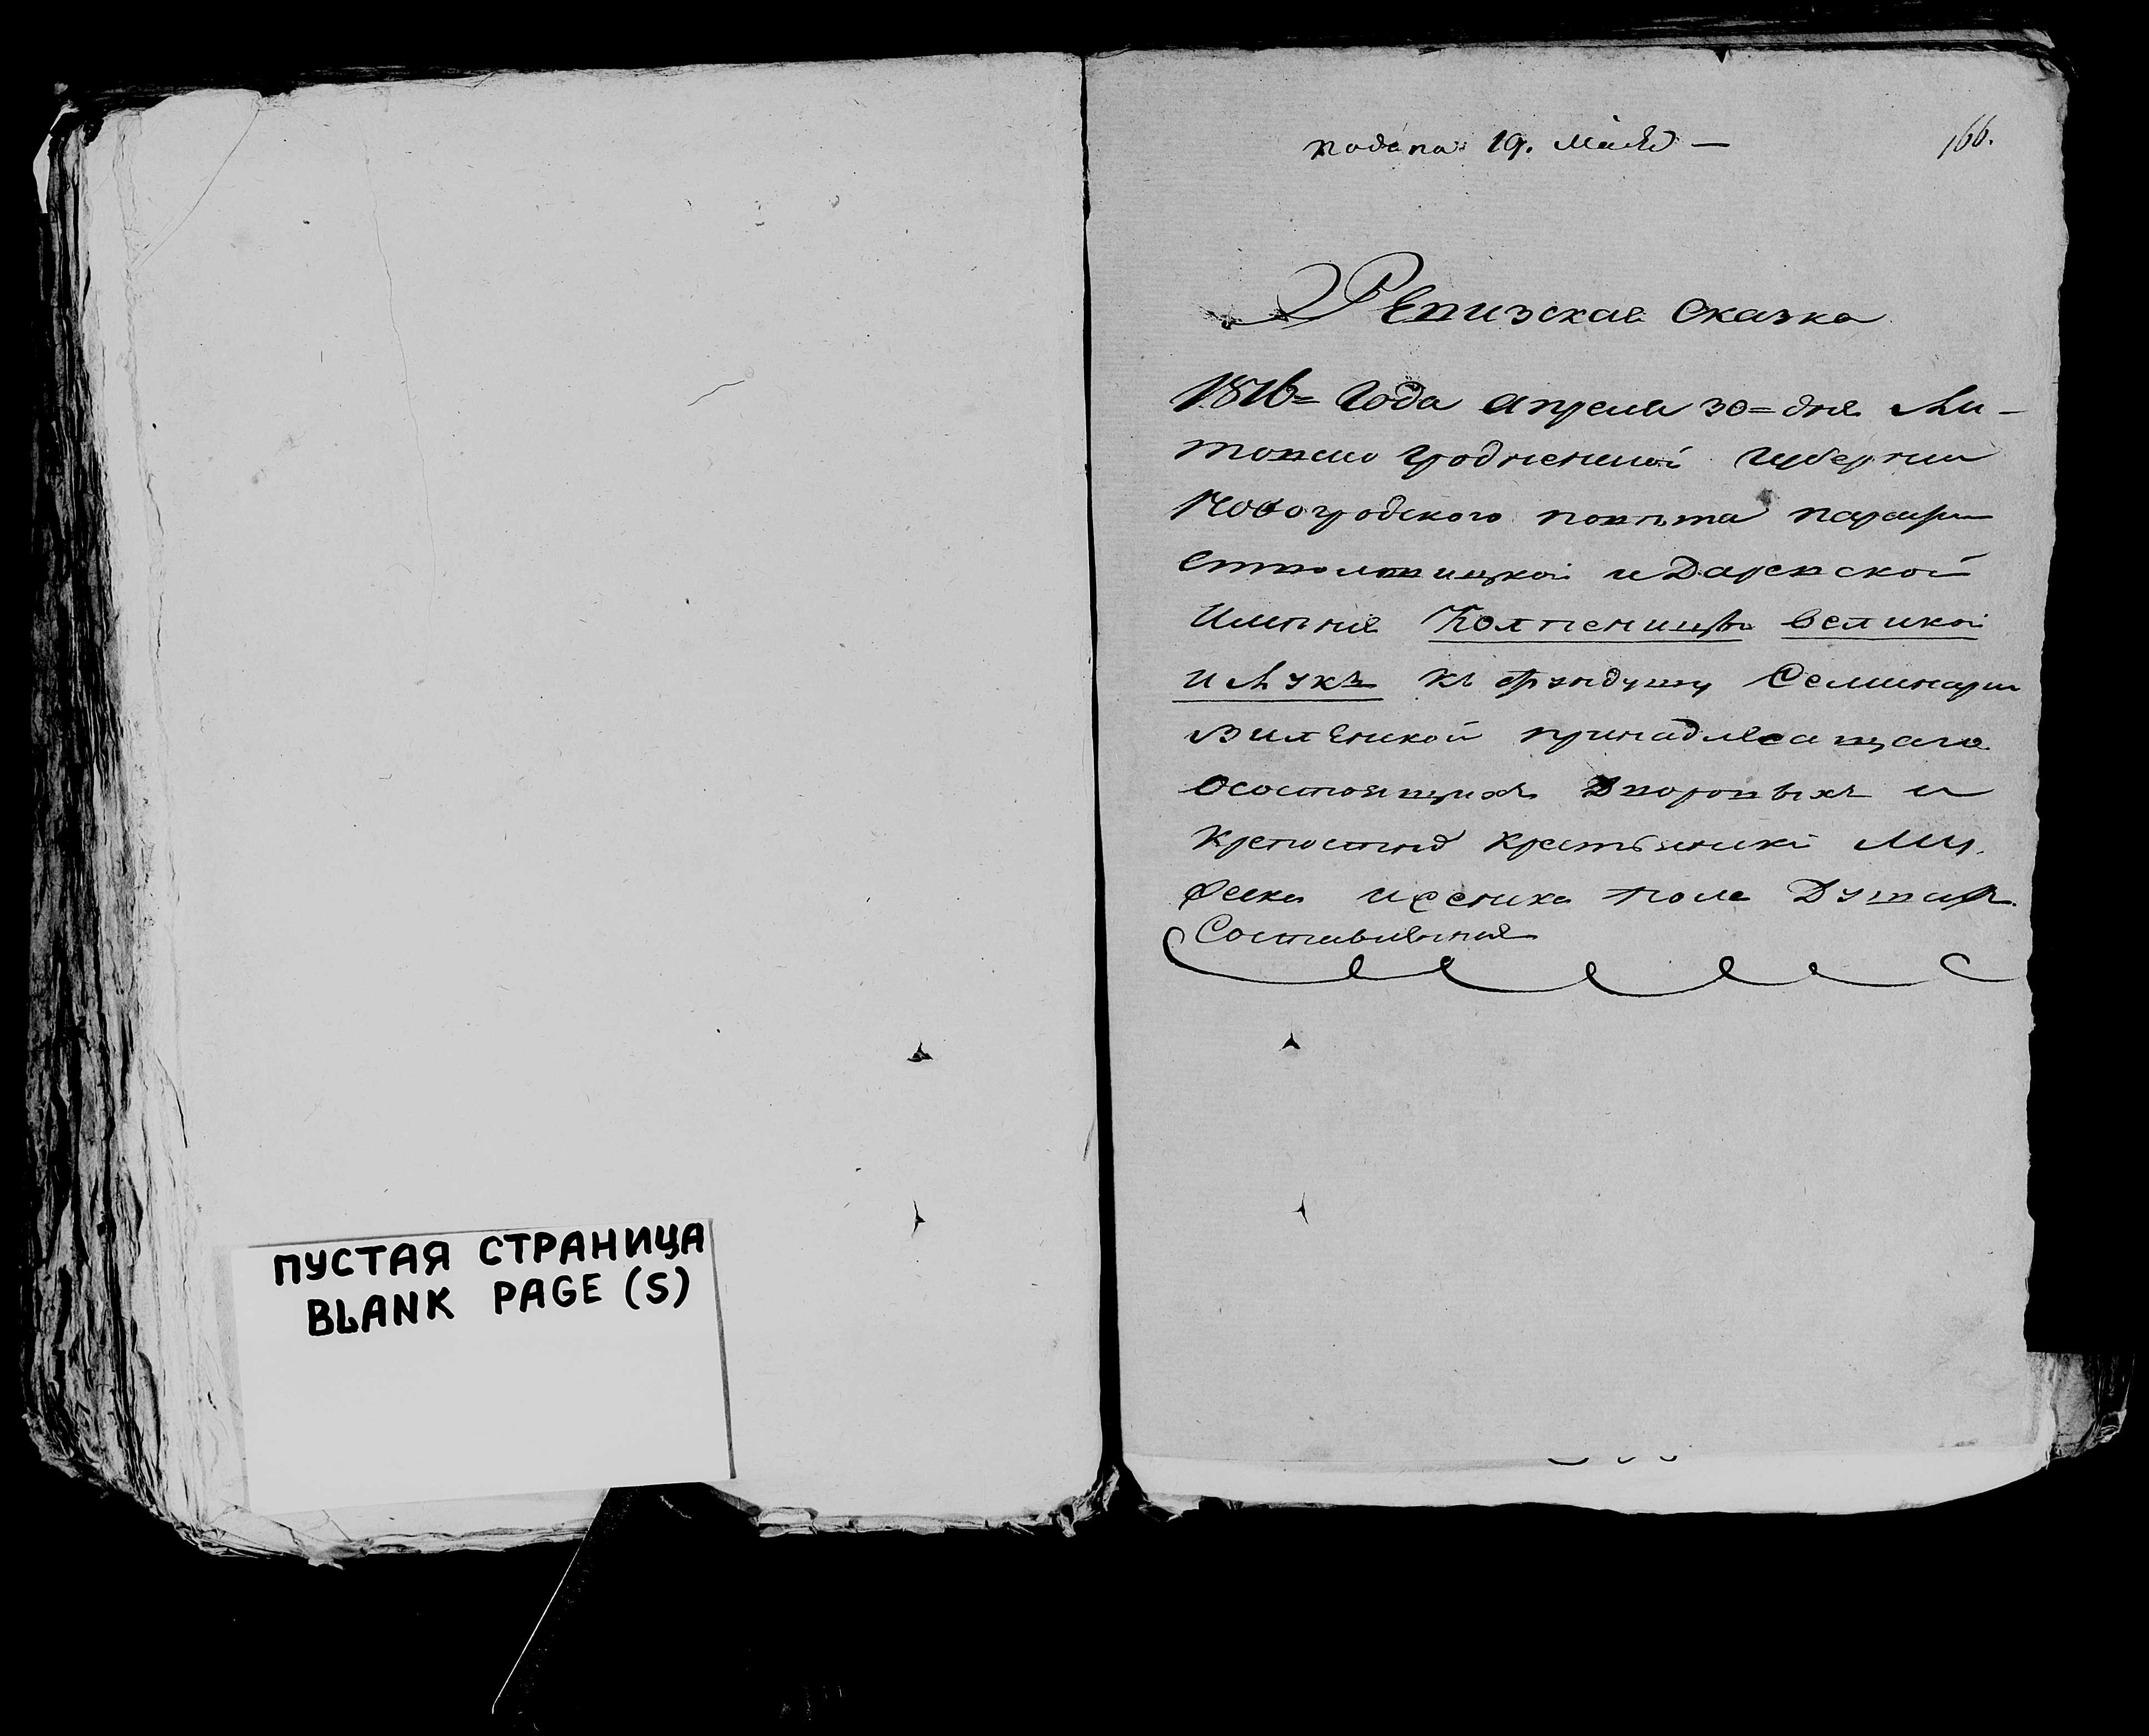 ПУСТАЯ СТРАНИЦА
BLANK PAGE (S)
подана 19. Мая —
166.
Ревизская Сказка
1816= Года апреля 30= дня Ли-
товско Гродненской Губернии
Новогродского повѣта парафии
Столовицкой и Даревской
Имѣния Колпеницъ великой
и Лукъ къ фундушу Семинарии
Виленской принадлежащаго
о состоящихъ Дворовыхъ и
крепостнo крестьянски Му.
жеска и женска пола Душах.
Составленная